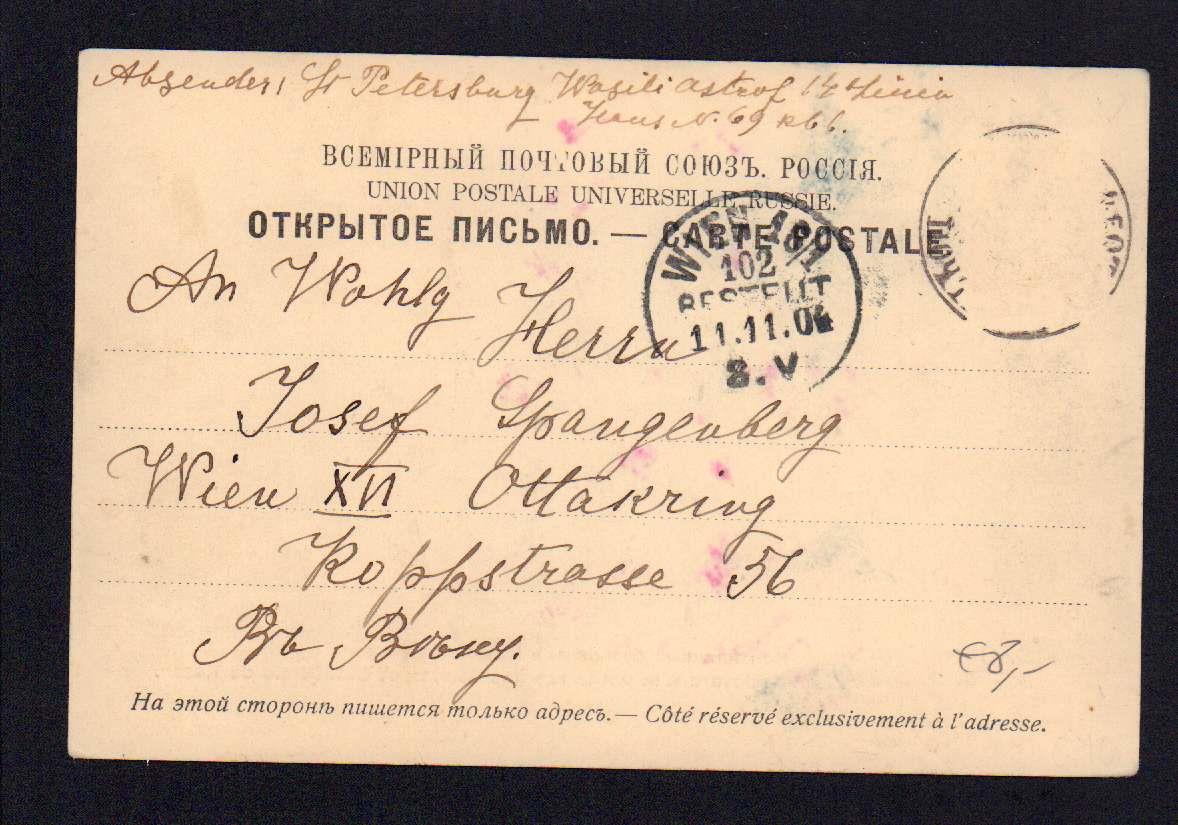 Absender: St Petersburg Wasili Astrof 14 Linia
Haus N. 69 кв 6.
ВСЕМІРНЫЙ ПОЧТОВЫЙ СОЮЗЪ. РОССІЯ.
UNION POSTALE UNIVERSELLE RUSSIE.
ОТКРЫТОЕ ПИСЬМО. — CARTE POSTALE.
WIEN 16/1
102
BESTELLT
11.11.04
8.V
An Wohlg Herrn
Josef Spangenberg
Wien XVI Ottakring
Koppstrasse 56
Въ Вѣну.
€8,-
На этой сторонѣ пишется только адресъ.— Côté réservé exclusivement à l'adresse.